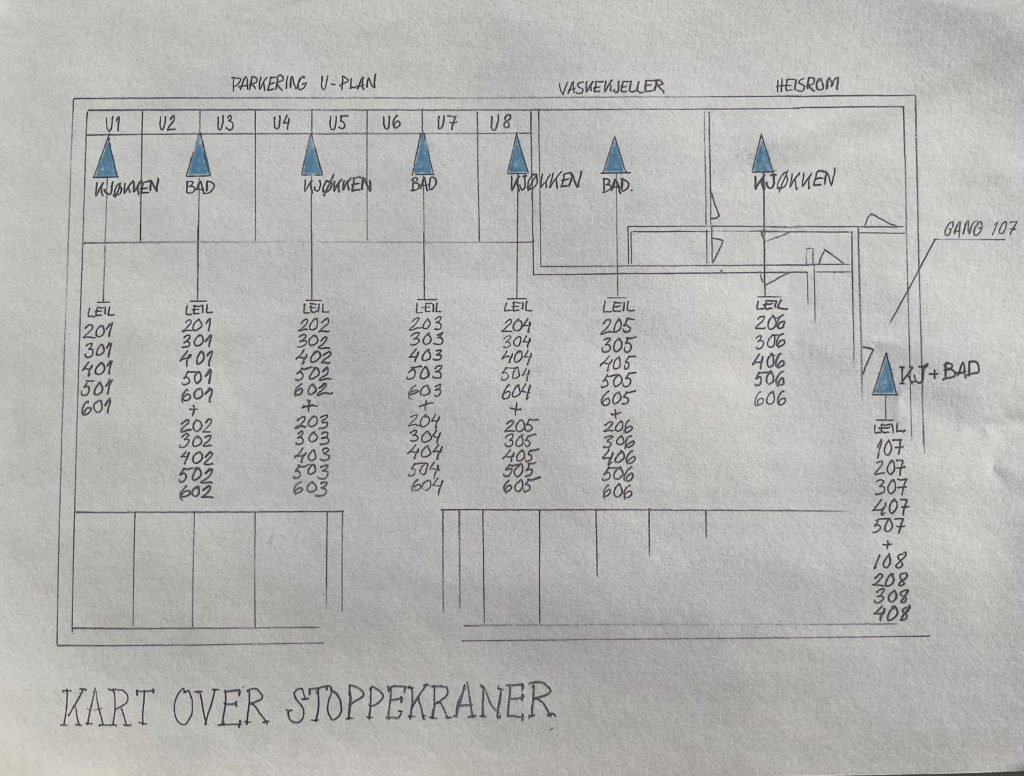 PARKERING U-PLAN
VASKEKJELLER
HEISROM
U1 U2 U3 U4 U5 U6 U7 U8
KJØKKEN
BAD
KJØKKEN
BAD
KJØKKEN
BAD.
KJØKKEN
GANG 107
KJ+BAD
LEIL
201
301
401
501
601
LEIL
201
301
401
501
601
+
202
302
402
502
602
LEIL
202
302
402
502
602
+
203
303
403
503
603
LEIL
203
303
403
503
603
+
204
304
404
504
604
LEIL
204
304
404
504
604
+
205
305
405
505
605
LEIL
205
305
405
505
605
+
206
306
406
506
606
LEIL
206
306
406
506
606
LEIL
107
207
307
407
507
+
108
208
308
408
KART OVER STOPPEKRANER